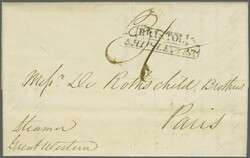 BRISTOL
SHIP LETTER
Mess^rs De Rothschild Brothers
Paris
Steamer
Great Western